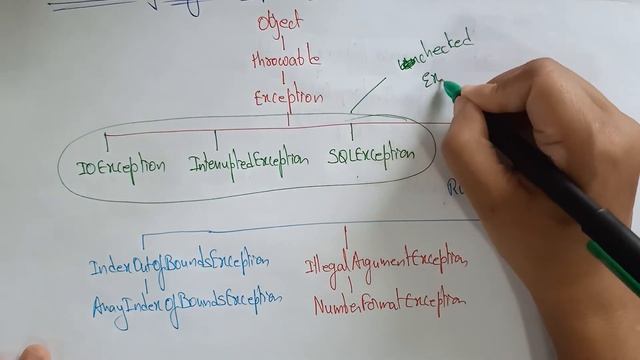 Object
Throwable
Exception
Unchecked
Ex
IOException InterruptedException SQLException
Ru
IndexOutOfBoundsException IllegalArgumentException
ArrayIndexOfBoundsException NumberFormatException